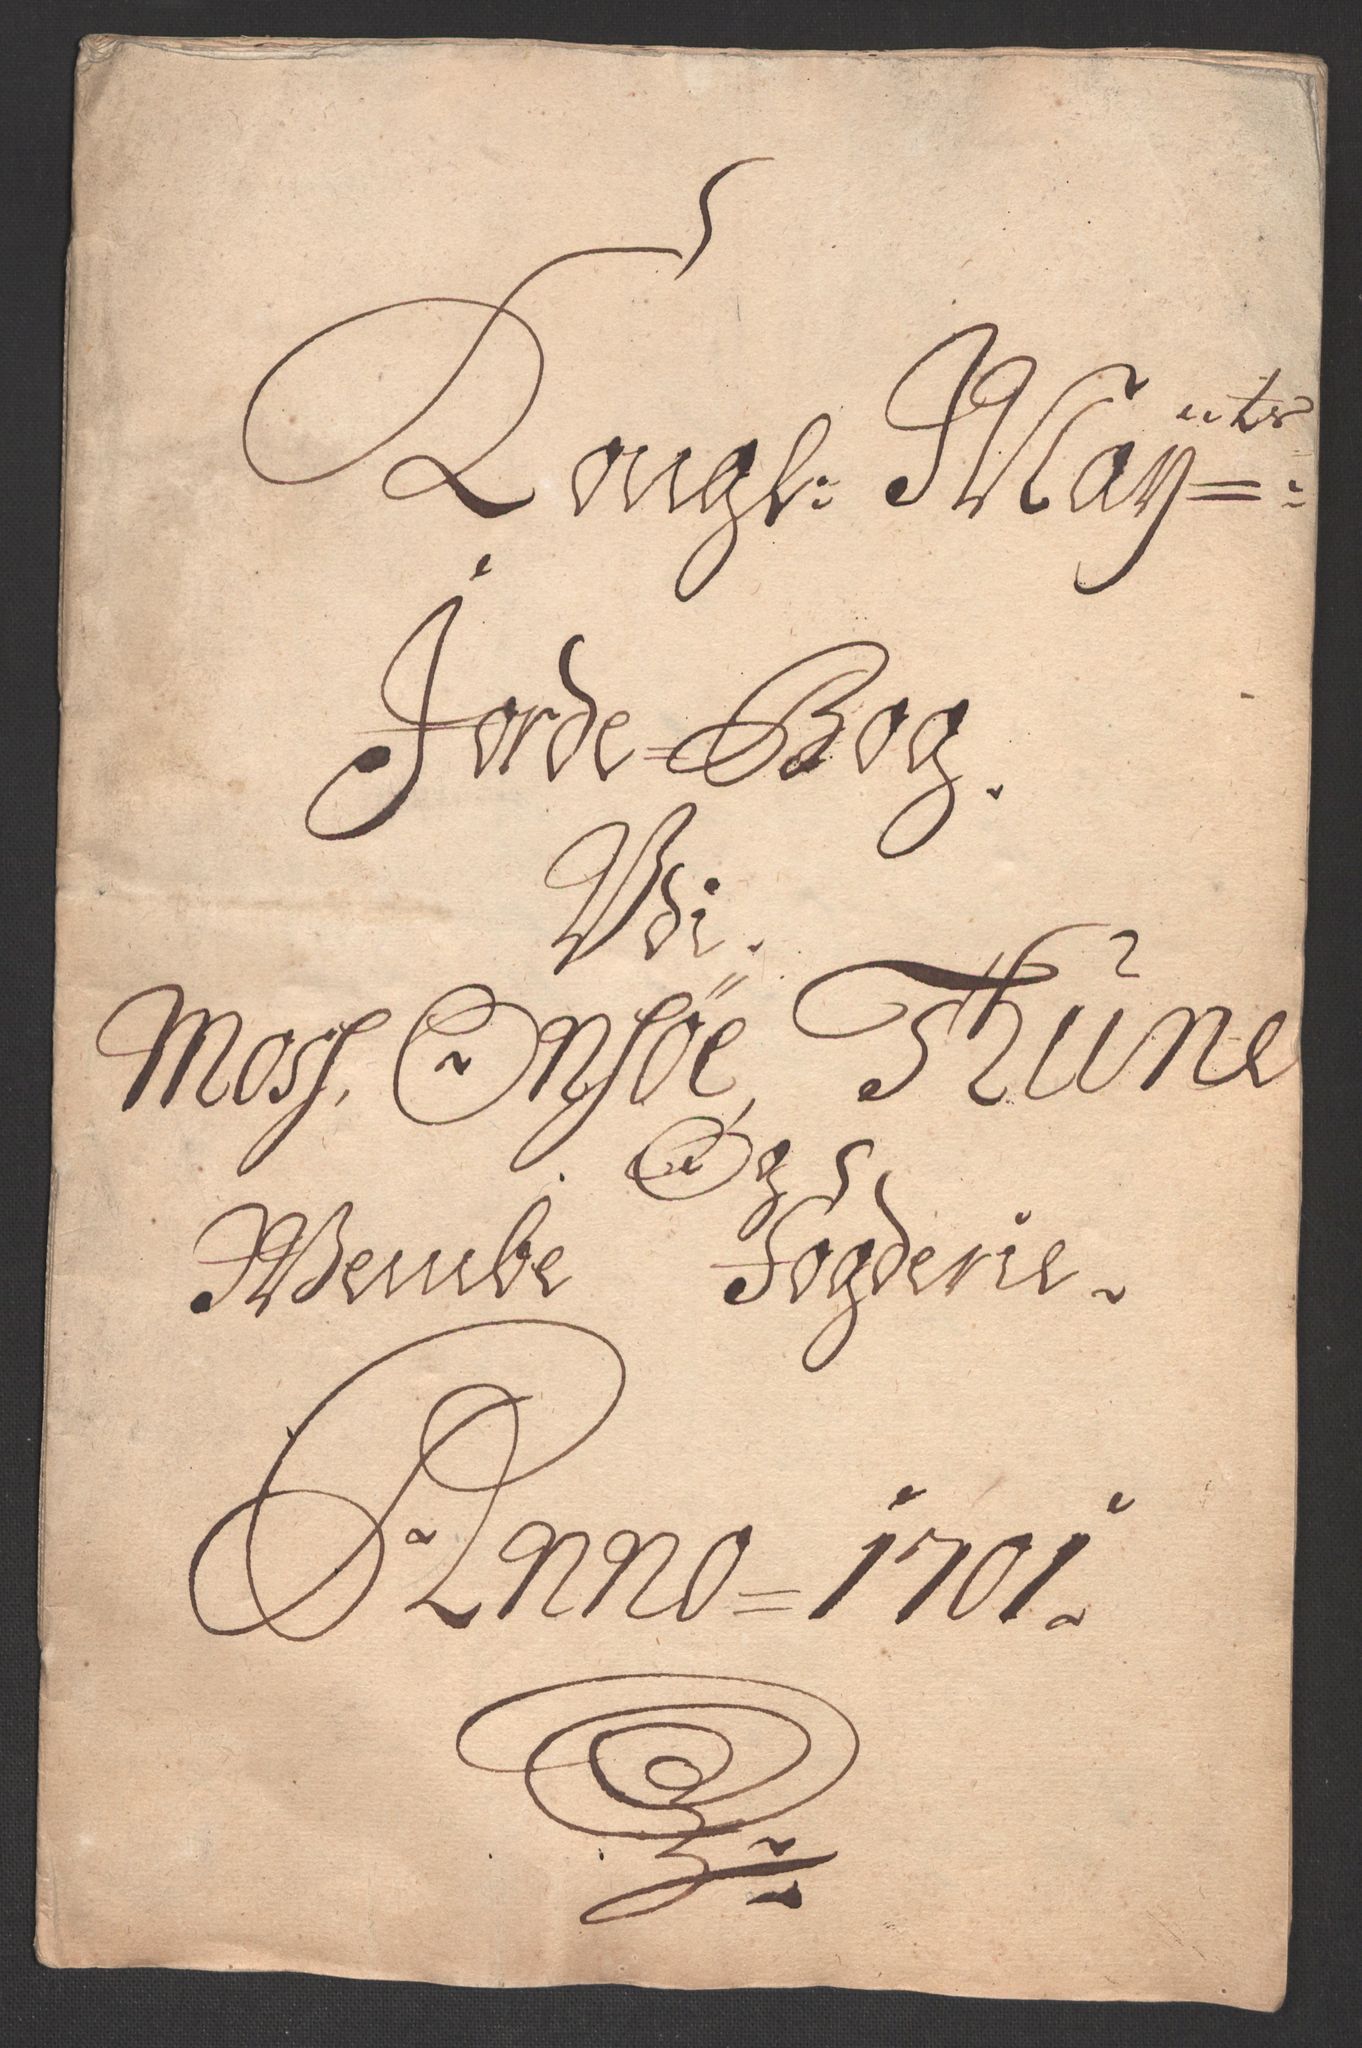 Kongl: Maÿ=tts:
Jorde=Bog.
Udi.
Moss. Onsöe, Thüne
Og
Wembe Fogderie.
Anno=1701.